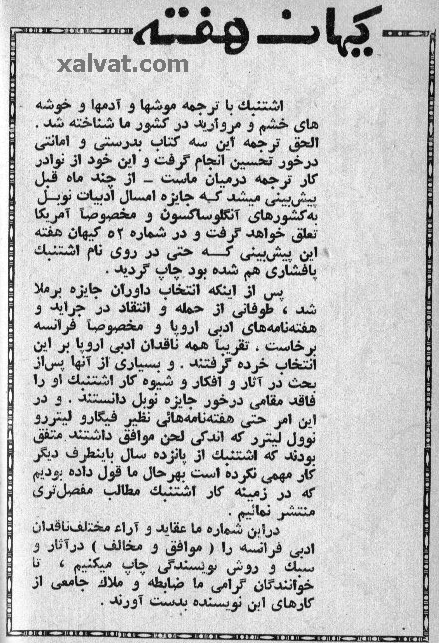 کیهان هفته
xalvat.com
اشتنبك با ترجمه موشها و آدمها و خوشه
های خشم و مروارید در کشور ما شناخته شد .
الحق ترجمه این سه کتاب بدرستی و امانتی
درخور تحسین انجام گرفت و این خود از نوادر
کار ترجمه درمیان ماست ــ از چند ماه قبل
پیش‌بینی میشد کـه جایزه امسال ادبیات نوبـل
به‌کشورهای آنگلوساکسون و مخصوصاً آمریکا
تعلق خواهد گرفت و در شماره ۵۲ کیهان هفته
این پیش‌بینی کــه حتی در روی نام اشتنبك
پافشاری هم شده بود چاپ گردید .
پس از اینکه انتخاب داوران جایزه برملا
شد ، طوفانی از حمله و انتقاد در جراید و
هفته‌نامه‌های ادبی اروپا و مخصوصاً فرانسه
برخاست . تقریباً همه ناقدان ادبی اروپا بر این
انتخاب خرده گرفتند . و بسیاری از آنها پس‌از
بحث در آثار و افکار و شیوه کار اشتنبك او را
فاقد مقامی درخور جایزه نوبل دانستند . و در
این امر حتی هفته‌نامه‌هائی نظیر فیگارو لیتررو
نوول لیترر که اندکی لحن موافق داشتند متفق
بودند که اشتنبك از پانزده سال باینطرف دیگر
کار مهمی نکرده است بهرحال ما قول داده بودیم
که در زمینه کار اشتنبك مطالب مفصل‌تری
منتشر نمائیم .
دراین شماره ما عقاید و آراء مختلف‌ناقدان
ادبی فرانسه را ( موافق و مخالف ) درآثار و
سبك و روش نویسندگی چاپ میکنیم ، تا
خوانندگان گرامی ما ضابطه و ملاك جامعی از
کارهای این نویسنده بدست آورند .